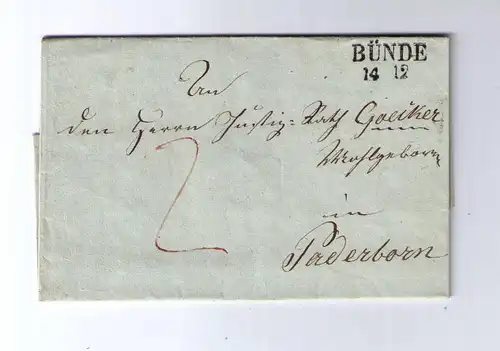 BÜNDE
14 12
An
den Herrn Justiz-Rath Goecker
Wohlgeborn
in
Paderborn
2